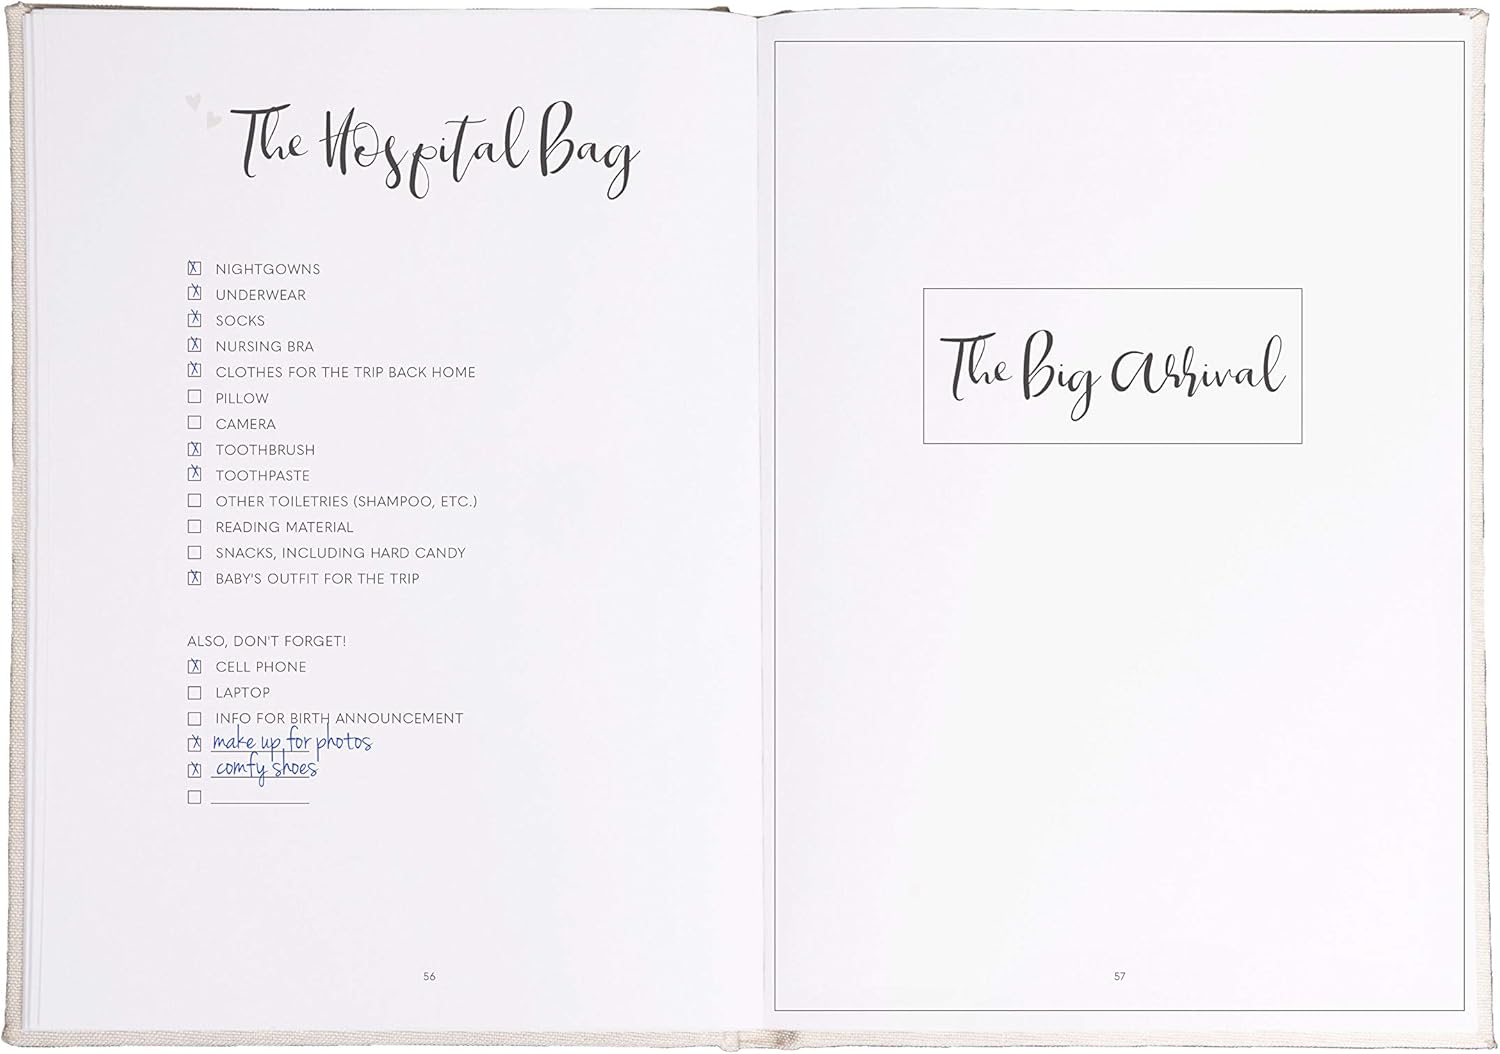 The Hospital Bag
NIGHTGOWNS
UNDERWEAR
SOCKS
NURSING BRA
CLOTHES FOR THE TRIP BACK HOME
PILLOW
CAMERA
TOOTHBRUSH
TOOTHPASTE
OTHER TOILETRIES (SHAMPOO, ETC.)
READING MATERIAL
SNACKS, INCLUDING HARD CANDY
BABY'S OUTFIT FOR THE TRIP
ALSO, DON'T FORGET!
CELL PHONE
LAPTOP
INFO FOR BIRTH ANNOUNCEMENT
make up for photos
comfy shoes
56
The Big Arrival
57